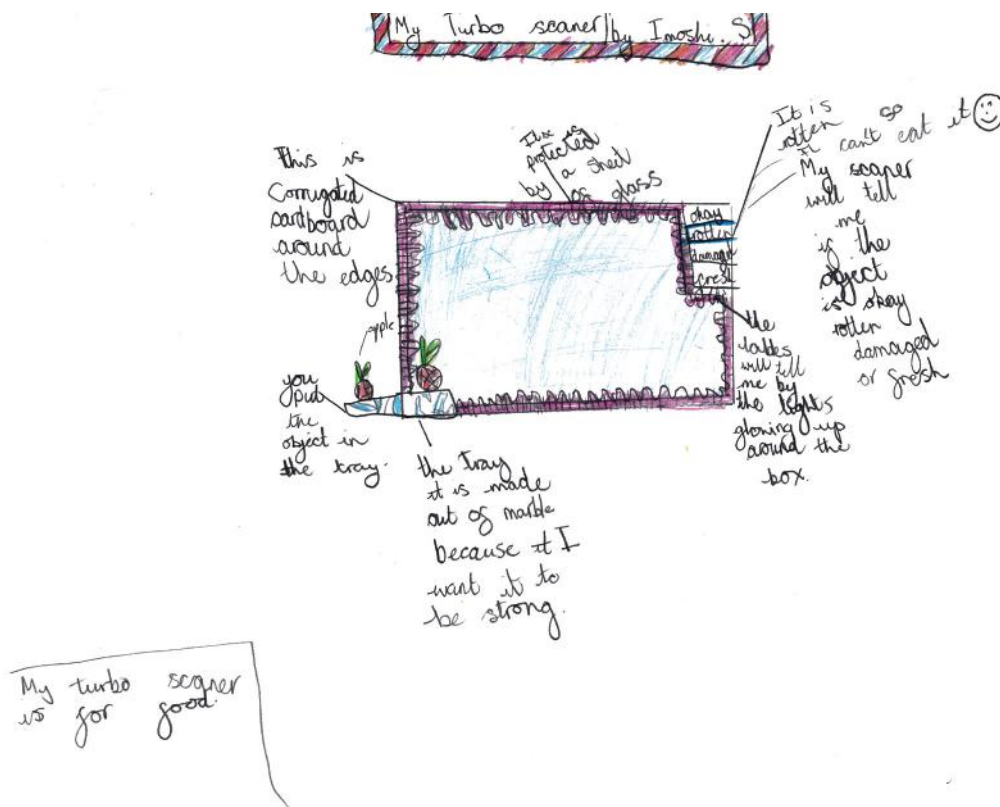 My Turbo scaner by Imoshi. S
This is
Corrugated
cardboard
around
the edges
protected
by a sheet
of glass
It is
rotten so
I can't eat it
My scaner
will tell
me
if the
object
is okay
rotten
damaged
or fresh
okay
rotten
damaged
fresh
apple
you
put
the
object in
the tray.
the
will tell
me by
the lights
glowing up
around the
box.
the tray
it is made
out of marble
because I
want it to
be strong.
My turbo scaner
is for good.